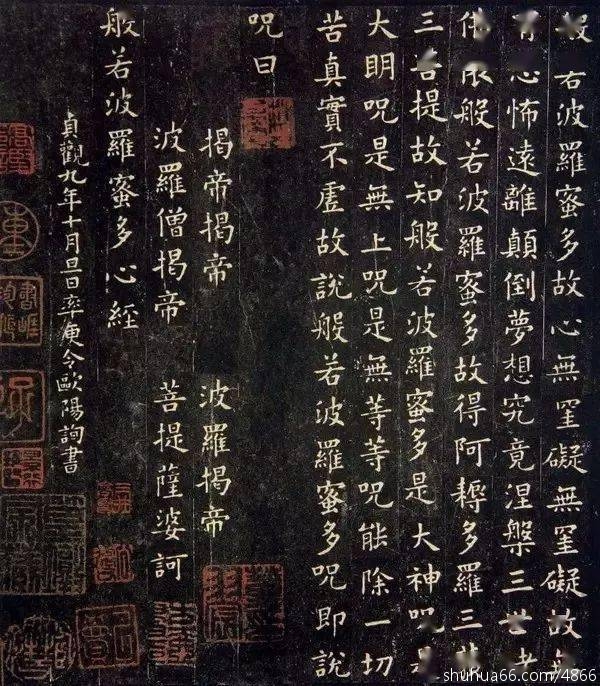 般若波羅蜜多故心無罣礙無罣礙故無
有恐怖遠離顛倒夢想究竟涅槃三世諸
佛依般若波羅蜜多故得阿耨多羅三藐
三菩提故知般若波羅蜜多是大神咒是
大明咒是無上咒是無等等咒能除一切
苦真實不虛故說般若波羅蜜多咒即說
咒曰
揭帝揭帝 波羅揭帝
波羅僧揭帝 菩提薩婆訶
般若波羅蜜多心經
貞觀九年十月旦日率更令歐陽詢書
shuhua66.com/4866